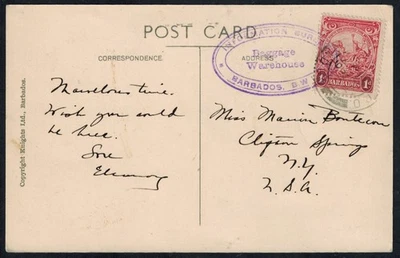 POST CARD
CORRESPONDENCE
ADDRESS
INFORMATION BUREAU
Baggage
Warehouse
BARBADOS, B.W.I.
BARBADOS
1D
1D
Marvelous time.
Wish you could
be here.
Love
Eleanor
Miss Marion
Clifton Springs
N.Y.
U.S.A.
Copyright Knights Ltd., Barbados.